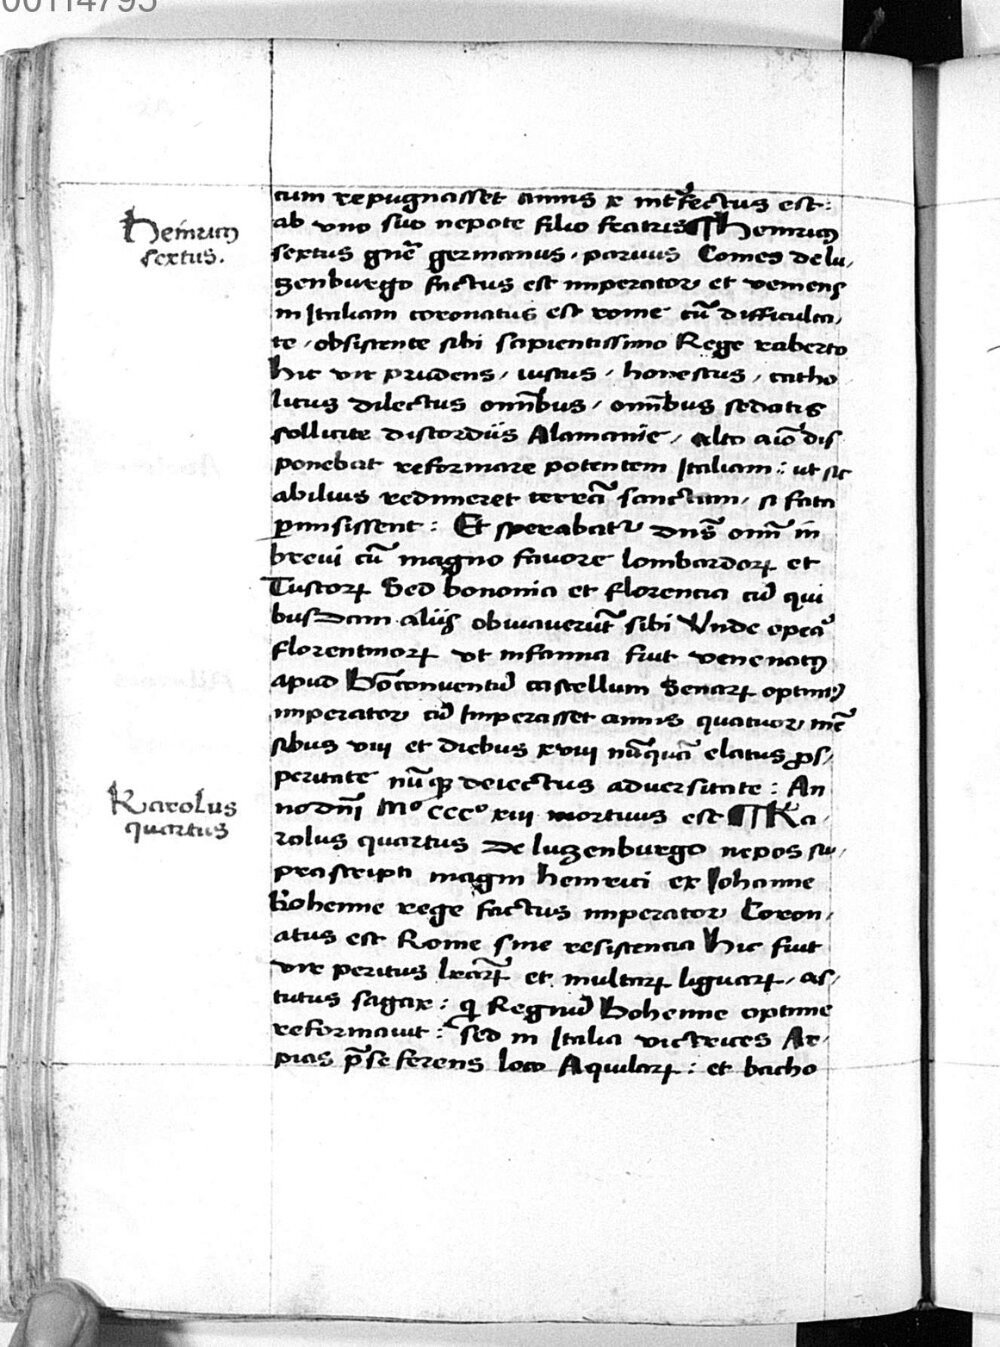 00114795
cum repugnasset annis x int̃fectus est:
Heinricꝯ
sextus.
ab vno suo nepote filio fratris ¶ Heinricꝯ
sextus gñe germanus. paruus Comes de lu,
tzenburgo factus est imperator et veniens
in Italiam coronatus est rome cũ difficulta,
te, obsistente sibi sapientissimo Rege roberto
hic vir prudens, iustus, honestus, catho
licus dilectus om̃ibus, om̃ibus sedatis
sollicite discordiis Alamanie, alto aĩo dis
ponebat reformare potentem Italiam: ut sic
abilius redimeret terrã sanctam, si fata
ꝑmisissent: Et sperabatur dñs om̃i in
breui cũ magno fauore lombardoꝝ et
Tuscoꝝ Sed bononia et florencia cũ qui
busdam aliis obuiauerũt sibi Vnde opera
florentinoꝝ vt infamia fuit venenatꝯ
apud Bõconuentũ castellum Senaꝝ optimꝯ
imperator cũ Imperasset annis quatuor mẽ
sibus viii et diebus xviii nũquã elatus ꝓs,
peritate nũqꝫ deiectus aduersitate: An
no dñi Mº cccº xiii mortuus est ¶ Ka,
Karolus
quartus
rolus quartus de lutzenburgo nepos su,
prascripti magni heinrici ex Johanne
Bohemie rege factus imperator Coron,
atus est Rome sine resistencia Hic fuit
vir peritus lr̃aꝝ et multaꝝ liguaꝝ, as,
tutus sagax: qi Regnũ Bohemie optime
reformauit: Sed in Italia victrices Ar,
pias p̃se ferens loco Aquilaꝝ: et bacho